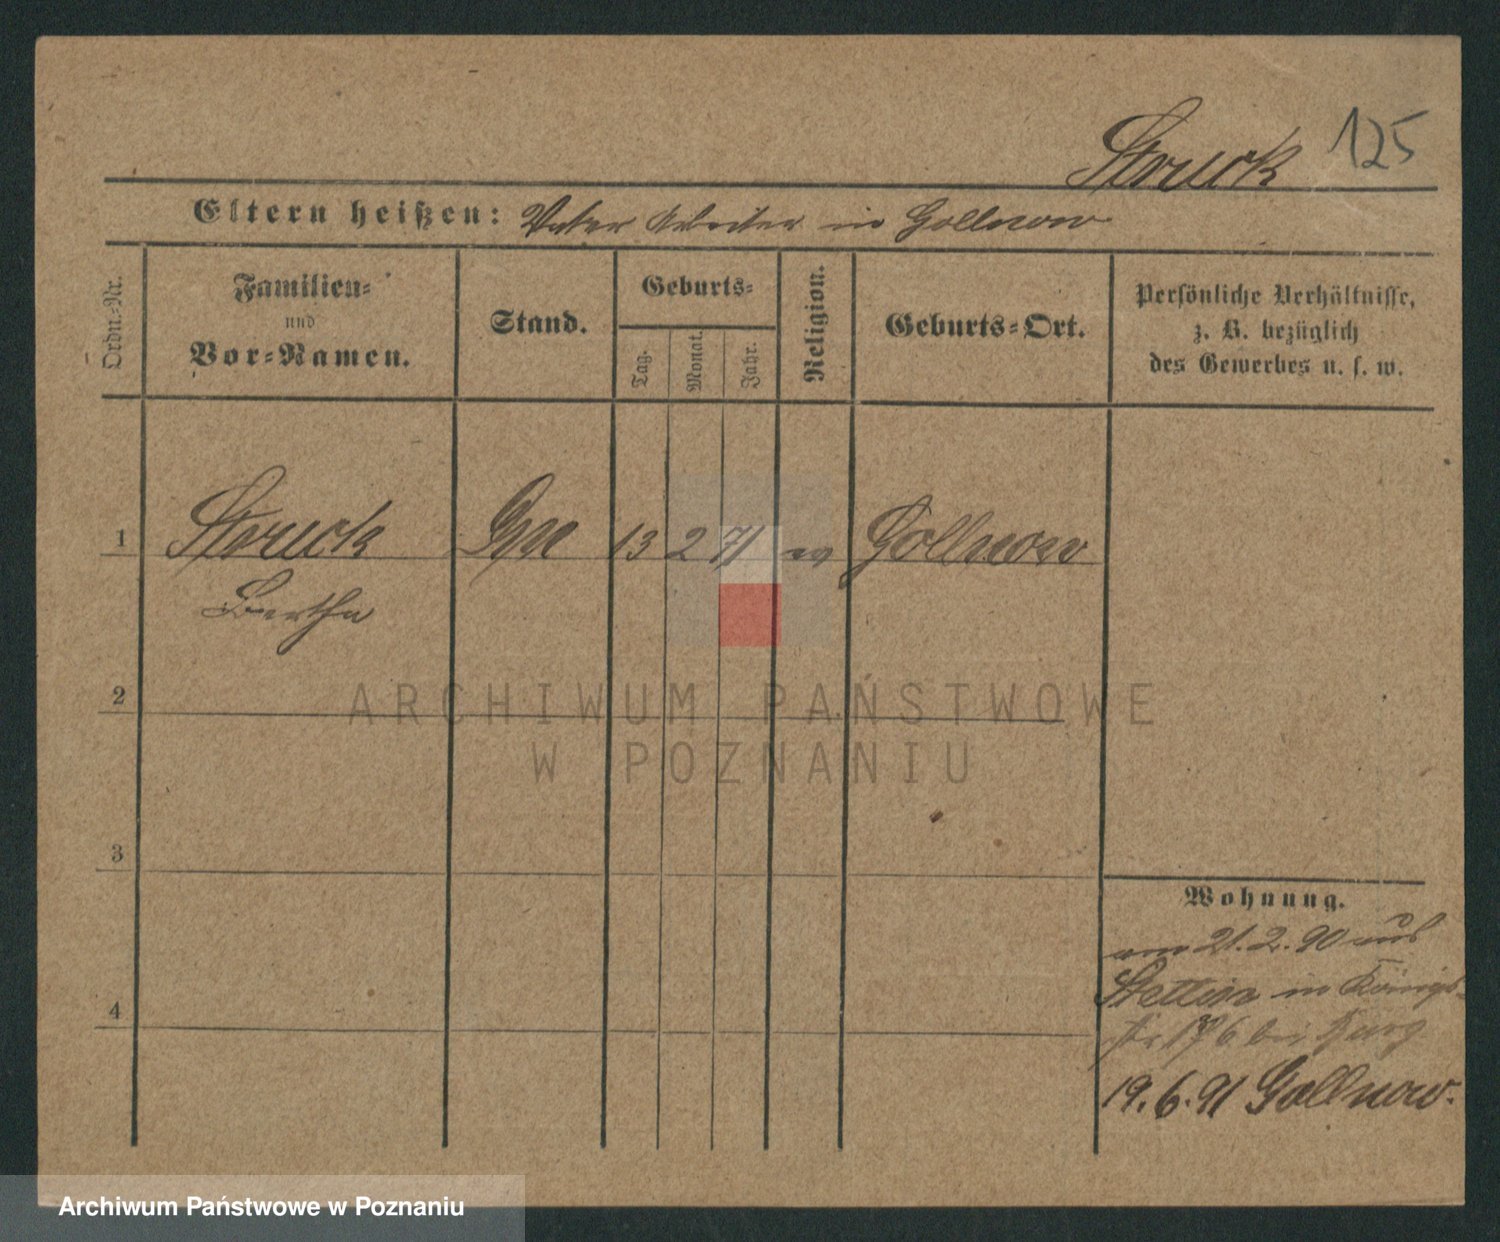 Struck 125
Eltern heißen: Vater Arbeiter in Gollnow
Ordn.-Nr.
Familien-
und
Vor-Namen.
Stand.
Geburts-
Tag.
Monat.
Jahr.
Religion.
Geburts-Ort.
Persönliche Verhältnisse,
z. B. bezüglich
des Gewerbes u. s. w.
1 Struck 13 2 71 ev Gollnow
Bertha
2
ARCHIWUM PAŃSTWOWE
W POZNANIU
3
Wohnung.
am 21.2.90 aus
Stettin in Königs-
4
bei
19.6.91 Gollnow.
Archiwum Państwowe w Poznaniu